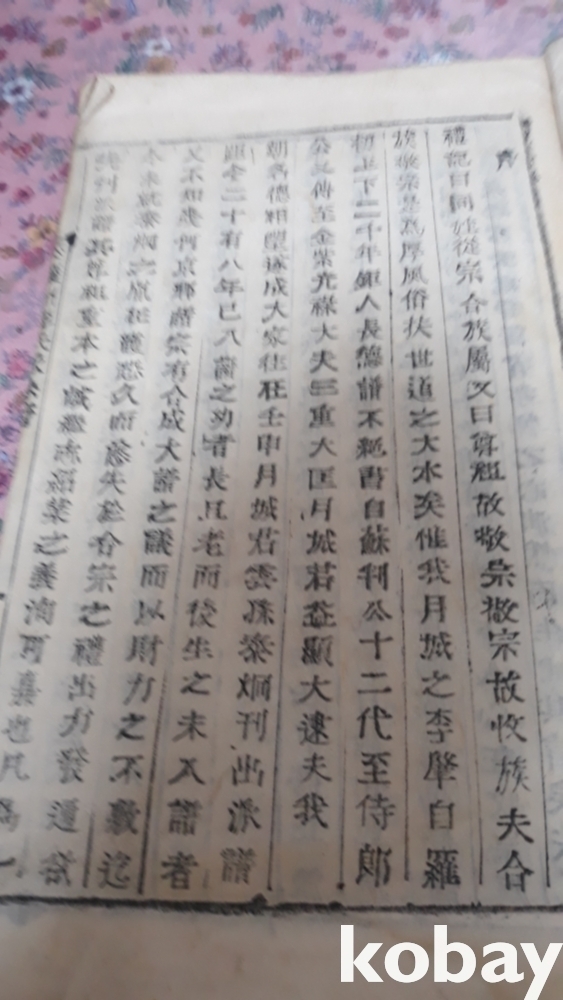 序
禮記曰同姓從宗合族屬又曰尊祖故敬宗敬宗故收族夫合
族敬宗是爲厚風俗扶世道之大本矣惟我月城之李肇自羅
初上下二千年鉅人長德譜不絶書自蘇判公十二代至侍郎
公 傳至金紫光祿大夫三重大匡月城君益顯大逮夫我
朝名德相望遂成大家往在壬申月城君 孫 炯刊出派譜
距今二十有八年已入 之幼者長且老而後生之未入譜者
又不知幾何京鄕諸宗有合成大譜之議而以財力之不敷迄
未就 炯之 從 慈久而 失於合宗之禮出力發通欲
刊 譜其尊祖重本之誠繼志 業之義洵可嘉也凡爲一
kobay